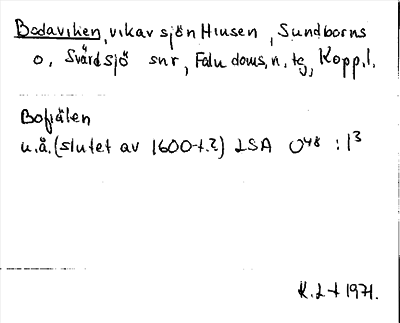 Bodaviken, vik av sjön Hinsen, Sundborns
o. Svärdsjö snr, Falu doms. n. tg, Kopp. l.
Bofjälen
u.å. (slutet av 1600-t.?) LSA U48 : 1³
K. L-t 1971.